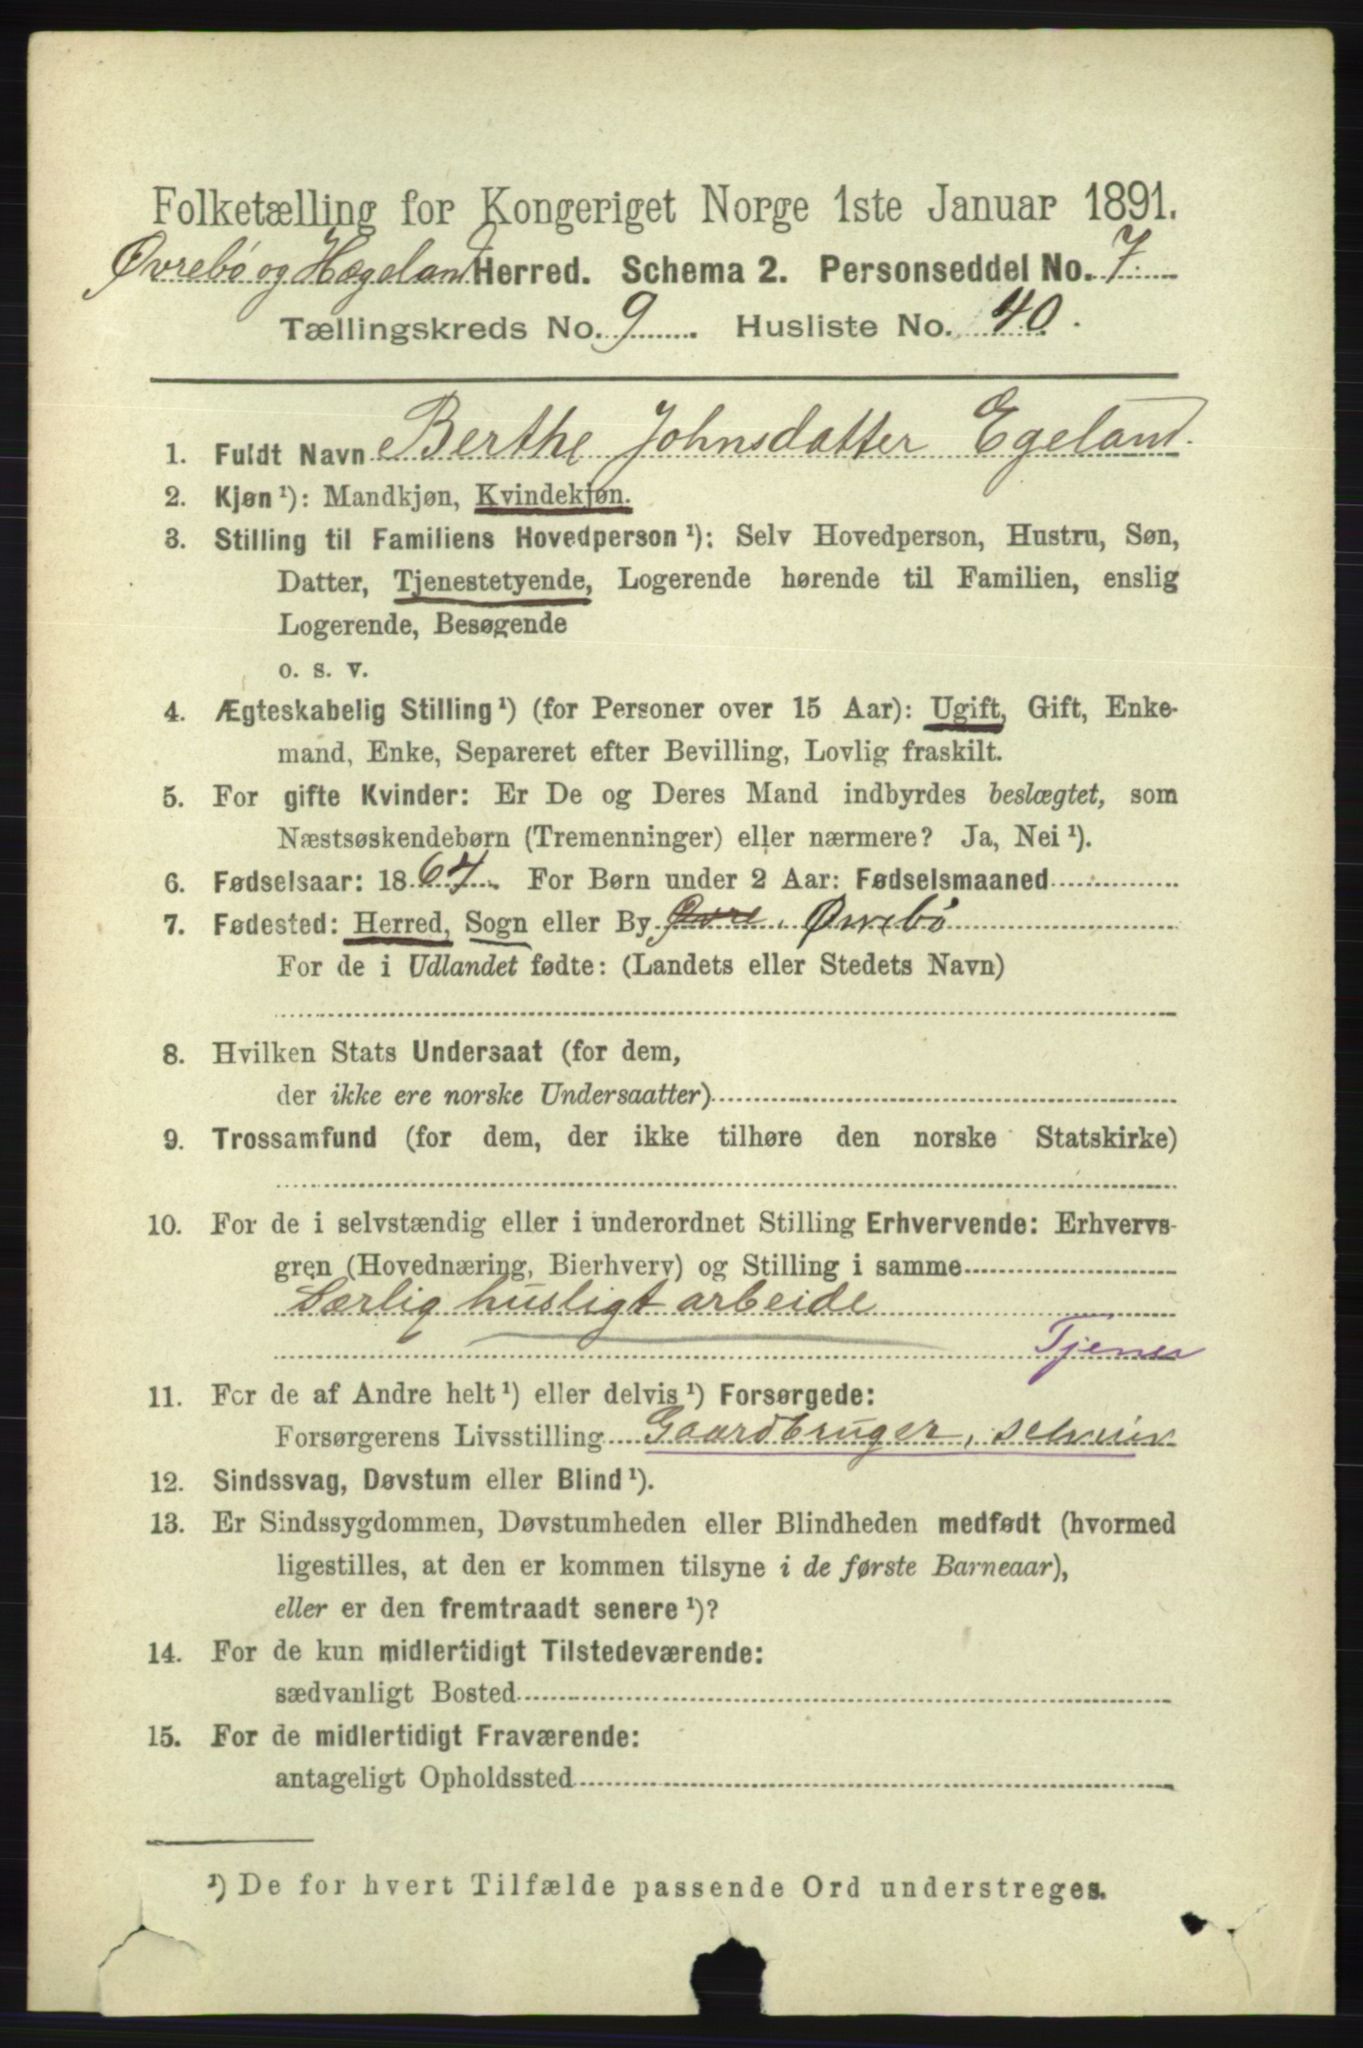 Folketælling for Kongeriget Norge 1ste Januar 1891.
Øvrebö og Hægeland Herred. Schema 2. Personseddel No. 7
Tællingskreds No. 9. Husliste No. 40.
1. Fuldt Navn Berthe Johnsdatter Egeland.
2. Kjøn ¹): Mandkjøn, Kvindekjøn.
3. Stilling til Familiens Hovedperson ¹): Selv Hovedperson, Hustru, Søn,
Datter, Tjenestetyende, Logerende hørende til Familien, enslig
Logerende, Besøgende
o. s. v.
4. Ægteskabelig Stilling ¹) (for Personer over 15 Aar): Ugift, Gift, Enke-
mand, Enke, Separeret efter Bevilling, Lovlig fraskilt.
5. For gifte Kvinder: Er De og Deres Mand indbyrdes beslægtet, som
Næstsøskendebørn (Tremenninger) eller nærmere? Ja, Nei ¹).
6. Fødselsaar: 1867. For Børn under 2 Aar: Fødselsmaaned
7. Fødested: Herred, Sogn eller By Øvre, Øvrebö
For de i Udlandet fødte: (Landets eller Stedets Navn)
8. Hvilken Stats Undersaat (for dem,
der ikke ere norske Undersaatter)
9. Trossamfund (for dem, der ikke tilhøre den norske Statskirke)
10. For de i selvstændig eller i underordnet Stilling Erhvervende: Erhvervs-
gren (Hovednæring, Bierhverv) og Stilling i samme
Særlig husligt arbeide
Tjener
11. For de af Andre helt ¹) eller delvis ¹) Forsørgede:
Forsørgerens Livsstilling Gaardbruger, selveier
12. Sindssvag, Døvstum eller Blind ¹).
13. Er Sindssygdommen, Døvstumheden eller Blindheden medfødt (hvormed
ligestilles, at den er kommen tilsyne i de første Barneaar),
eller er den fremtraadt senere ¹)?
14. For de kun midlertidigt Tilstedeværende:
sædvanligt Bosted
15. For de midlertidigt Fraværende:
antageligt Opholdssted
¹) De for hvert Tilfælde passende Ord understreges.